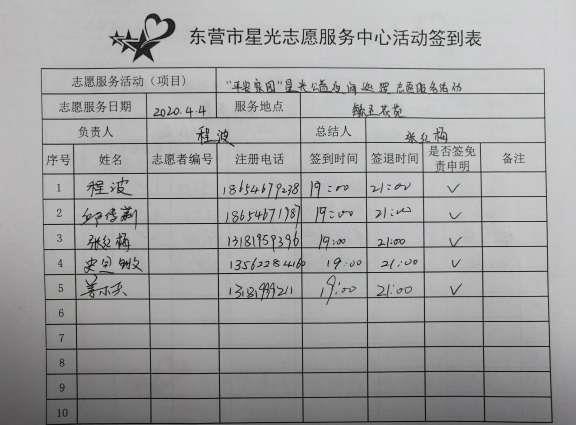 东营市星光志愿服务中心活动签到表
志愿服务活动(项目) "平安家园"星光公益夜间巡逻志愿服务活动
志愿服务日期 2020.4.4 服务地点
负责人 程波 总结人 张红梅
序号 姓名 志愿者编号 注册电话 签到时间 签退时间 是否签免责申明 备注
1 程波 18654679238 19:00 21:00 ✓
2 18654671987 19:00 21:00 ✓
3 张红梅 13181959396 19:00 21:00 ✓
4 13562284160 19:00 21:00 ✓
5 13181999211 19:00 21:00 ✓
6
7
8
9
10